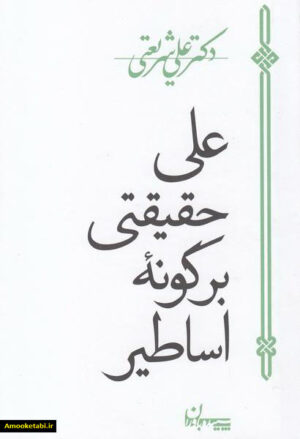 دکتر علی شریعتی
علی
حقیقتی
بر گونهٔ
اساطیر
سپیده باوران
Amooketabi.ir